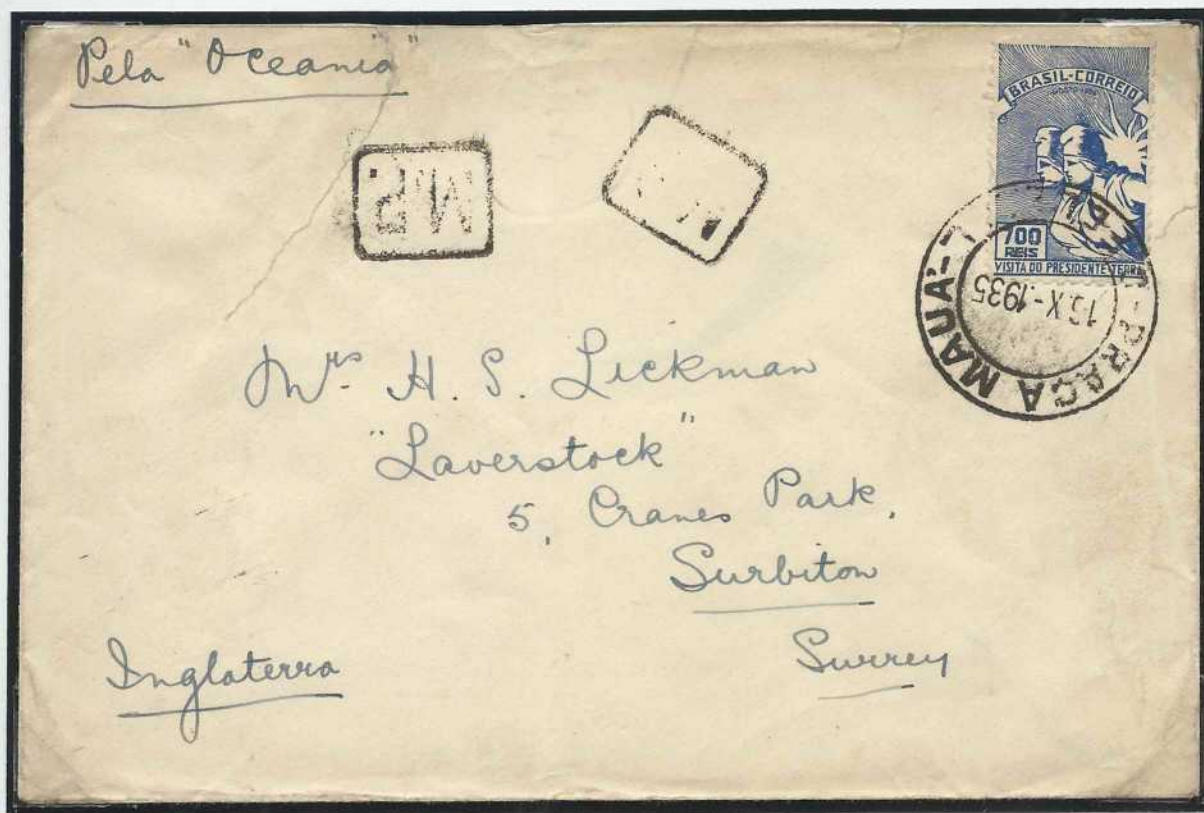 Pela "Oceania"
BRASIL-CORREIO
700
REIS
VISITA DO PRESIDENTE TERRA
PRAÇA MAUÁ
X-1935
Mrs. H. S. Lickman
"Laverstock"
5, Cranes Park,
Surbiton
Surrey
Inglaterra